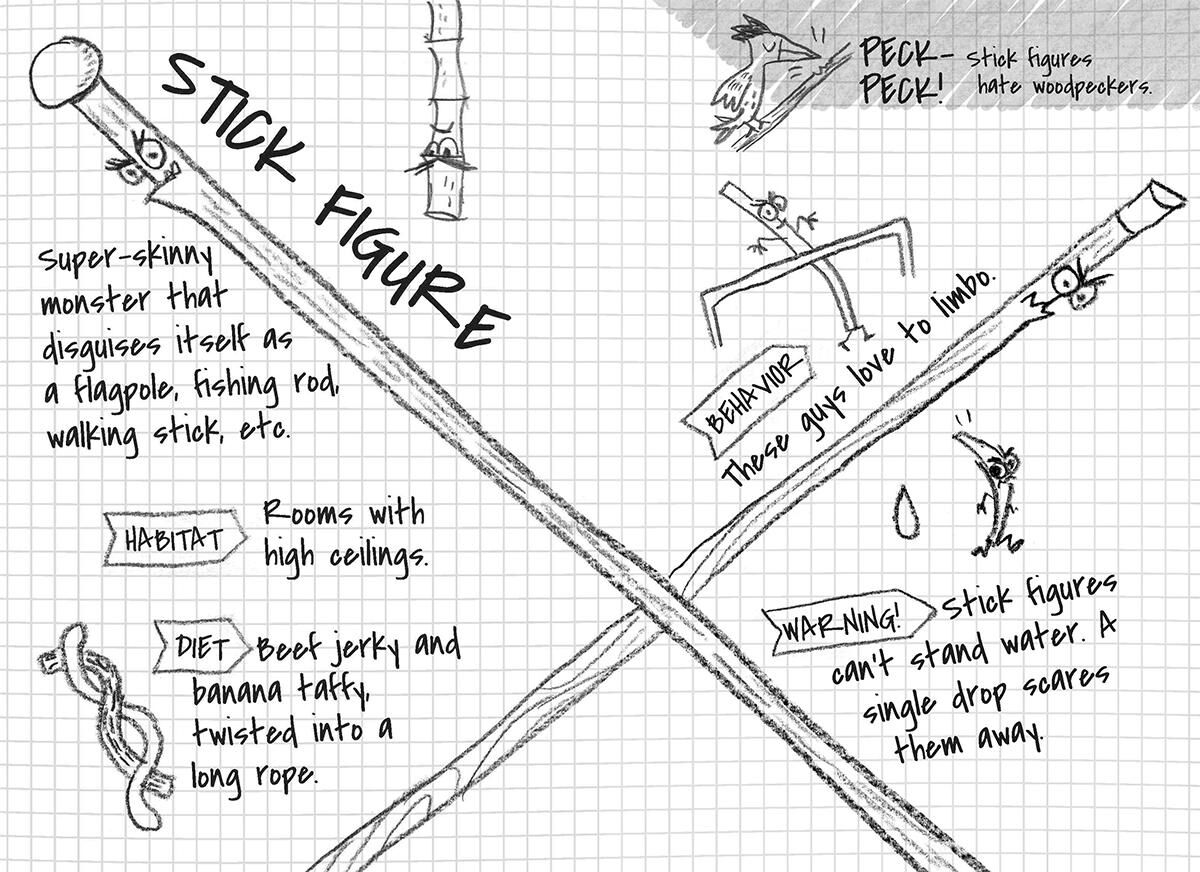 STICK FIGURE
Super-skinny
monster that
disguises itself as
a flagpole, fishing rod,
walking stick, etc.
HABITAT Rooms with
high ceilings.
DIET Beef jerky and
banana taffy,
twisted into a
long rope.
PECK- Stick figures
PECK! hate woodpeckers.
BEHAVIOR
These guys love to limbo.
WARNING! Stick figures
can't stand water. A
single drop scares
them away.